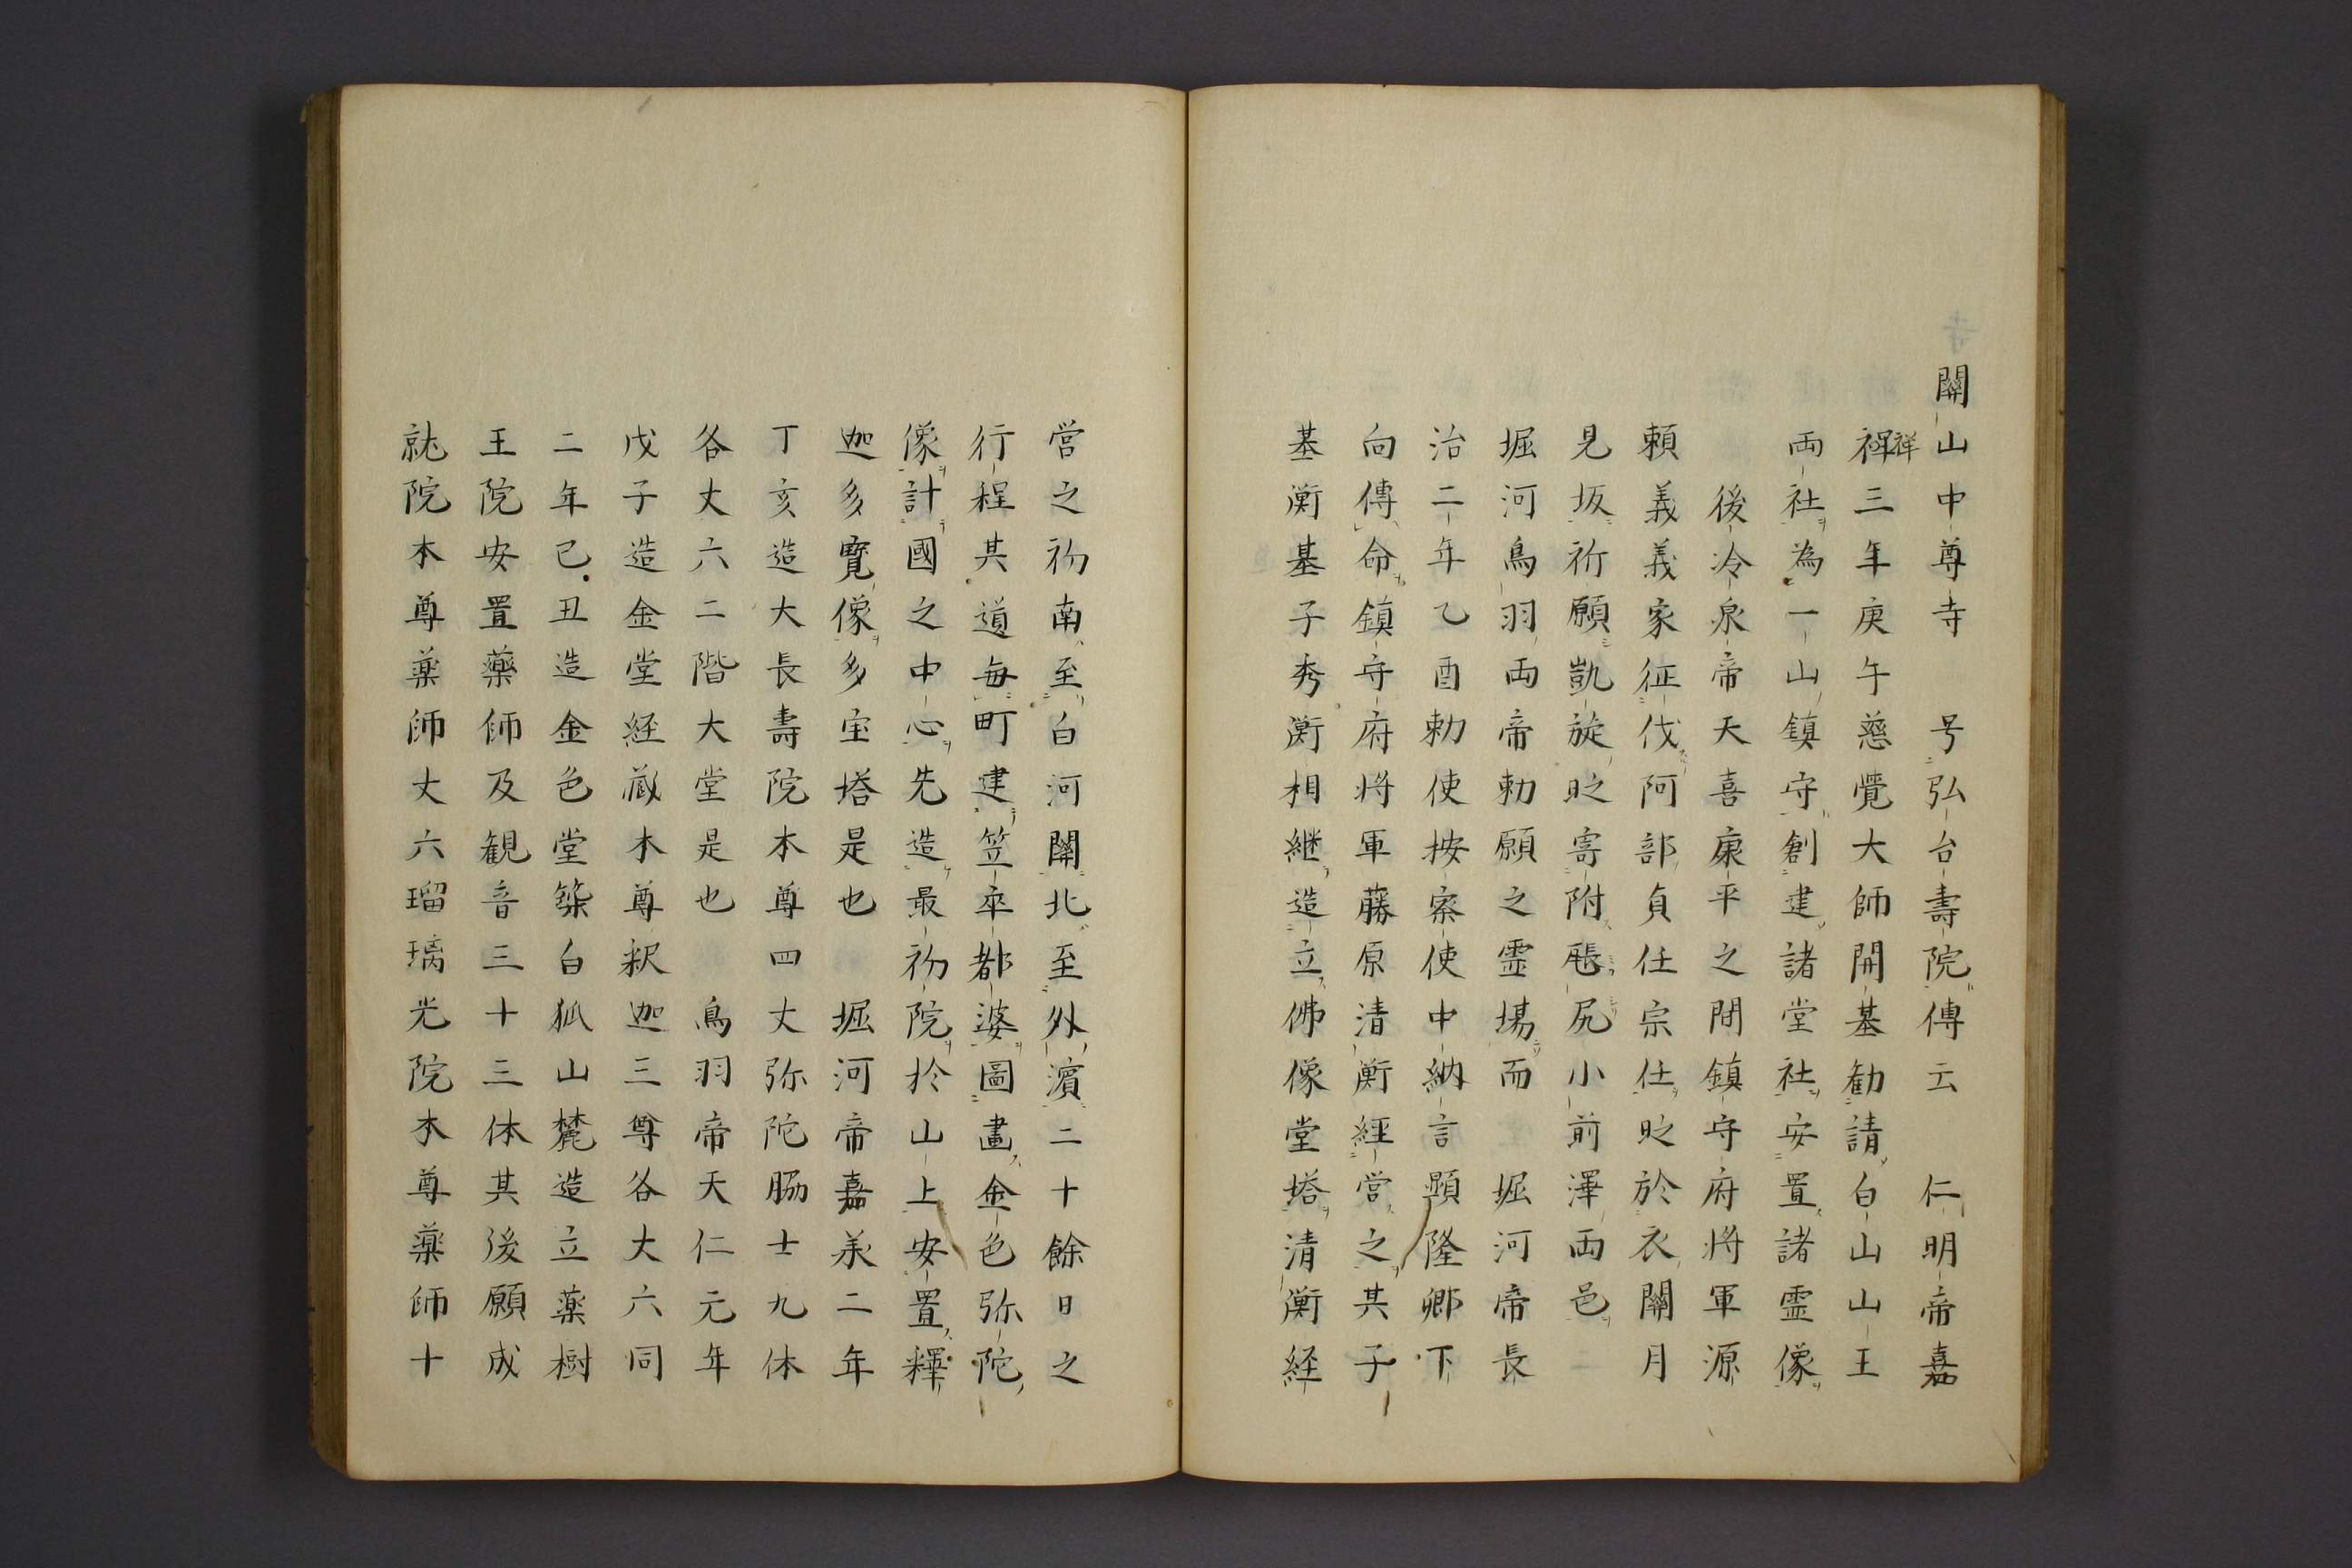 關山中尊寺　号弘台壽院傳云　仁明帝嘉
祥三年庚午慈覺大師開基勧請白山山王
両社為一山鎮守創建諸堂社安置諸霊像
後冷泉帝天喜康平之間鎮守府将軍源
頼義義家征伐阿部貞任宗任時於衣關月
見坂祈願凱旋時寄附膓尻小前澤両邑
堀河鳥羽両帝勅願之霊場而　堀河帝長
治二年乙酉勅使按察使中納言顕隆卿下
向傳命鎮守府将軍藤原清衡經営之其子
基衡基子秀衡相継造立佛像堂塔清衡経
営之初南至白河關北至外濵二十餘日之
行程其道毎町建笠卒都婆圖畫金色弥陀
像計國之中心先造最初院於山上安置釋
迦多寳像多宝塔是也　堀河帝嘉承二年
丁亥造大長壽院本尊四丈弥陀脇士九体
各丈六二階大堂是也　鳥羽帝天仁元年
戊子造金堂経蔵本尊釈迦三尊各大六同
二年己丑造金色堂築白狐山麓造立薬樹
王院安置藥師及観音三十三体其後願成
就院本尊薬師丈六瑠璃光院本尊薬師十